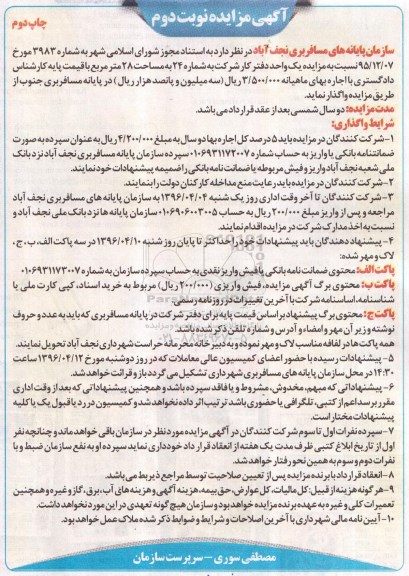 آگهی مزایده نوبت دوم
چاپ دوم
سازمان پایانه های مسافربری نجف آباد در نظر دارد به استناد مجوز شورای اسلامی شهر به شماره ۳۹۸۳ مورخ
۹۵/۱۲/۰۷ نسبت به مزایده یک واحد دفتر کار شرکت به شماره ۲۴ به مساحت ۲۸ متر مربع با قیمت پایه کارشناس
دادگستری با اجاره بهای ماهیانه ۳/۵۰۰/۰۰۰ ریال (سه میلیون و پانصد هزار ریال) در پایانه مسافربری جنوب از
طریق مزایده واگذار نماید.
مدت مزایده: دو سال شمسی بعد از عقد قرارداد می باشد.
شرایط واگذاری:
۱- شرکت کنندگان در مزایده باید ۵ درصد کل اجاره بها دو سال به مبلغ ۴/۲۰۰/۰۰۰ ریال به عنوان سپرده به صورت
ضمانتنامه بانکی یا واریز به حساب شماره ۰۱۰۶۹۳۱۱۷۲۰۰۷ سپرده سازمان پایانه مسافربری نجف آباد نزد بانک
ملی شعبه نجف آباد واریز و فیش مربوطه یا ضمانت نامه بانکی را ضمیمه پیشنهادات خود نمایند.
۲- شرکت کنندگان در مزایده باید رعایت منع مداخله کارکنان دولت را بنمایند.
۳- شرکت کنندگان تا آخر وقت اداری روز یک شنبه ۱۳۹۶/۰۴/۰۴ به سازمان پایانه های مسافربری نجف آباد
مراجعه و پس از واریز مبلغ ۲۰۰/۰۰۰ ریال به حساب ۰۱۰۶۹۰۶۰۰۳۰۰۵ سازمان پایانه ها نزد بانک ملی نجف آباد و
نسبت به اخذ مدارک شرکت در مزایده اقدام نمایند.
۴- پیشنهاد دهندگان باید پیشنهادات خود را حداکثر تا پایان روز شنبه ۱۳۹۶/۰۴/۱۰ در سه پاکت الف، ب، ج،
لاک و مهر شده:
پاکت الف: محتوی ضمانت نامه بانکی یا فیش واریز نقدی به حساب سپرده سازمان به شماره ۰۱۰۶۹۳۱۱۷۳۰۰۷
پاکت ب: محتوی برگ آگهی مزایده، فیش واریزی (۲۰۰/۰۰۰ ریال) مربوط به خرید اسناد، کپی کارت ملی یا
شناسنامه، اساسنامه شرکت با آخرین تغییرات در روزنامه رسمی
پاکت ج: محتوی برگ پیشنهاد بر اساس قیمت پایه برای دفتر شرکت در پایانه مسافربری که باید به عدد و حروف
نوشته و زیر آن مهر و امضاء و آدرس و شماره تلفن ذکر شده باشد.
همه پاکت ها در لفافه مناسب لاک و مهر نموده و به دبیرخانه محرمانه حراست شهرداری نجف آباد تحویل نمایند.
۵- پیشنهادات رسیده با حضور اعضای کمیسیون عالی معاملات که در روز دوشنبه مورخ ۱۳۹۶/۰۴/۱۲ ساعت
۱۴:۳۰ در محل سازمان پایانه های مسافربری شهرداری تشکیل می گردد باز و قرائت خواهد شد.
۶- پیشنهاداتی که مبهم، مخدوش، مشروط و یا فاقد سپرده باشد و همچنین پیشنهاداتی که بعد از وقت اداری
مقرر برسد اعم از کتبی، تلگرافی یا حضوری باشد ترتیب اثر داده نخواهد شد و کمیسیون در رد یا قبول یک یا کلیه
پیشنهادات مختار است.
۷- سپرده نفرات اول تا سوم شرکت کنندگان در آگهی مزایده مورد نظر در سازمان باقی خواهد ماند و چنانچه نفر
اول از تاریخ ابلاغ کتبی ظرف مدت یک هفته از انعقاد قرارداد خودداری نماید سپرده او به نفع سازمان ضبط و با
نفرات دوم و سوم به همین نحو رفتار خواهد شد.
۸- انعقاد قرارداد با برنده مزایده پس از تعیین صلاحیت توسط مراجع ذیربط می باشد.
۹- هر گونه هزینه از قبیل: کل مالیات، کل عوارض، حق بیمه، هزینه آگهی و هزینه های آب، برق، گاز و غیره و همچنین
تعمیرات کلی و غیره به عهده برنده مزایده خواهد بود و سازمان هیچ گونه تعهدی در این مورد نخواهد داشت.
۱۰- آیین نامه مالی شهرداری با آخرین اصلاحات و شرایط و ضوابط ذکر شده ملاک عمل خواهد بود.
مصطفی سوری - سرپرست سازمان